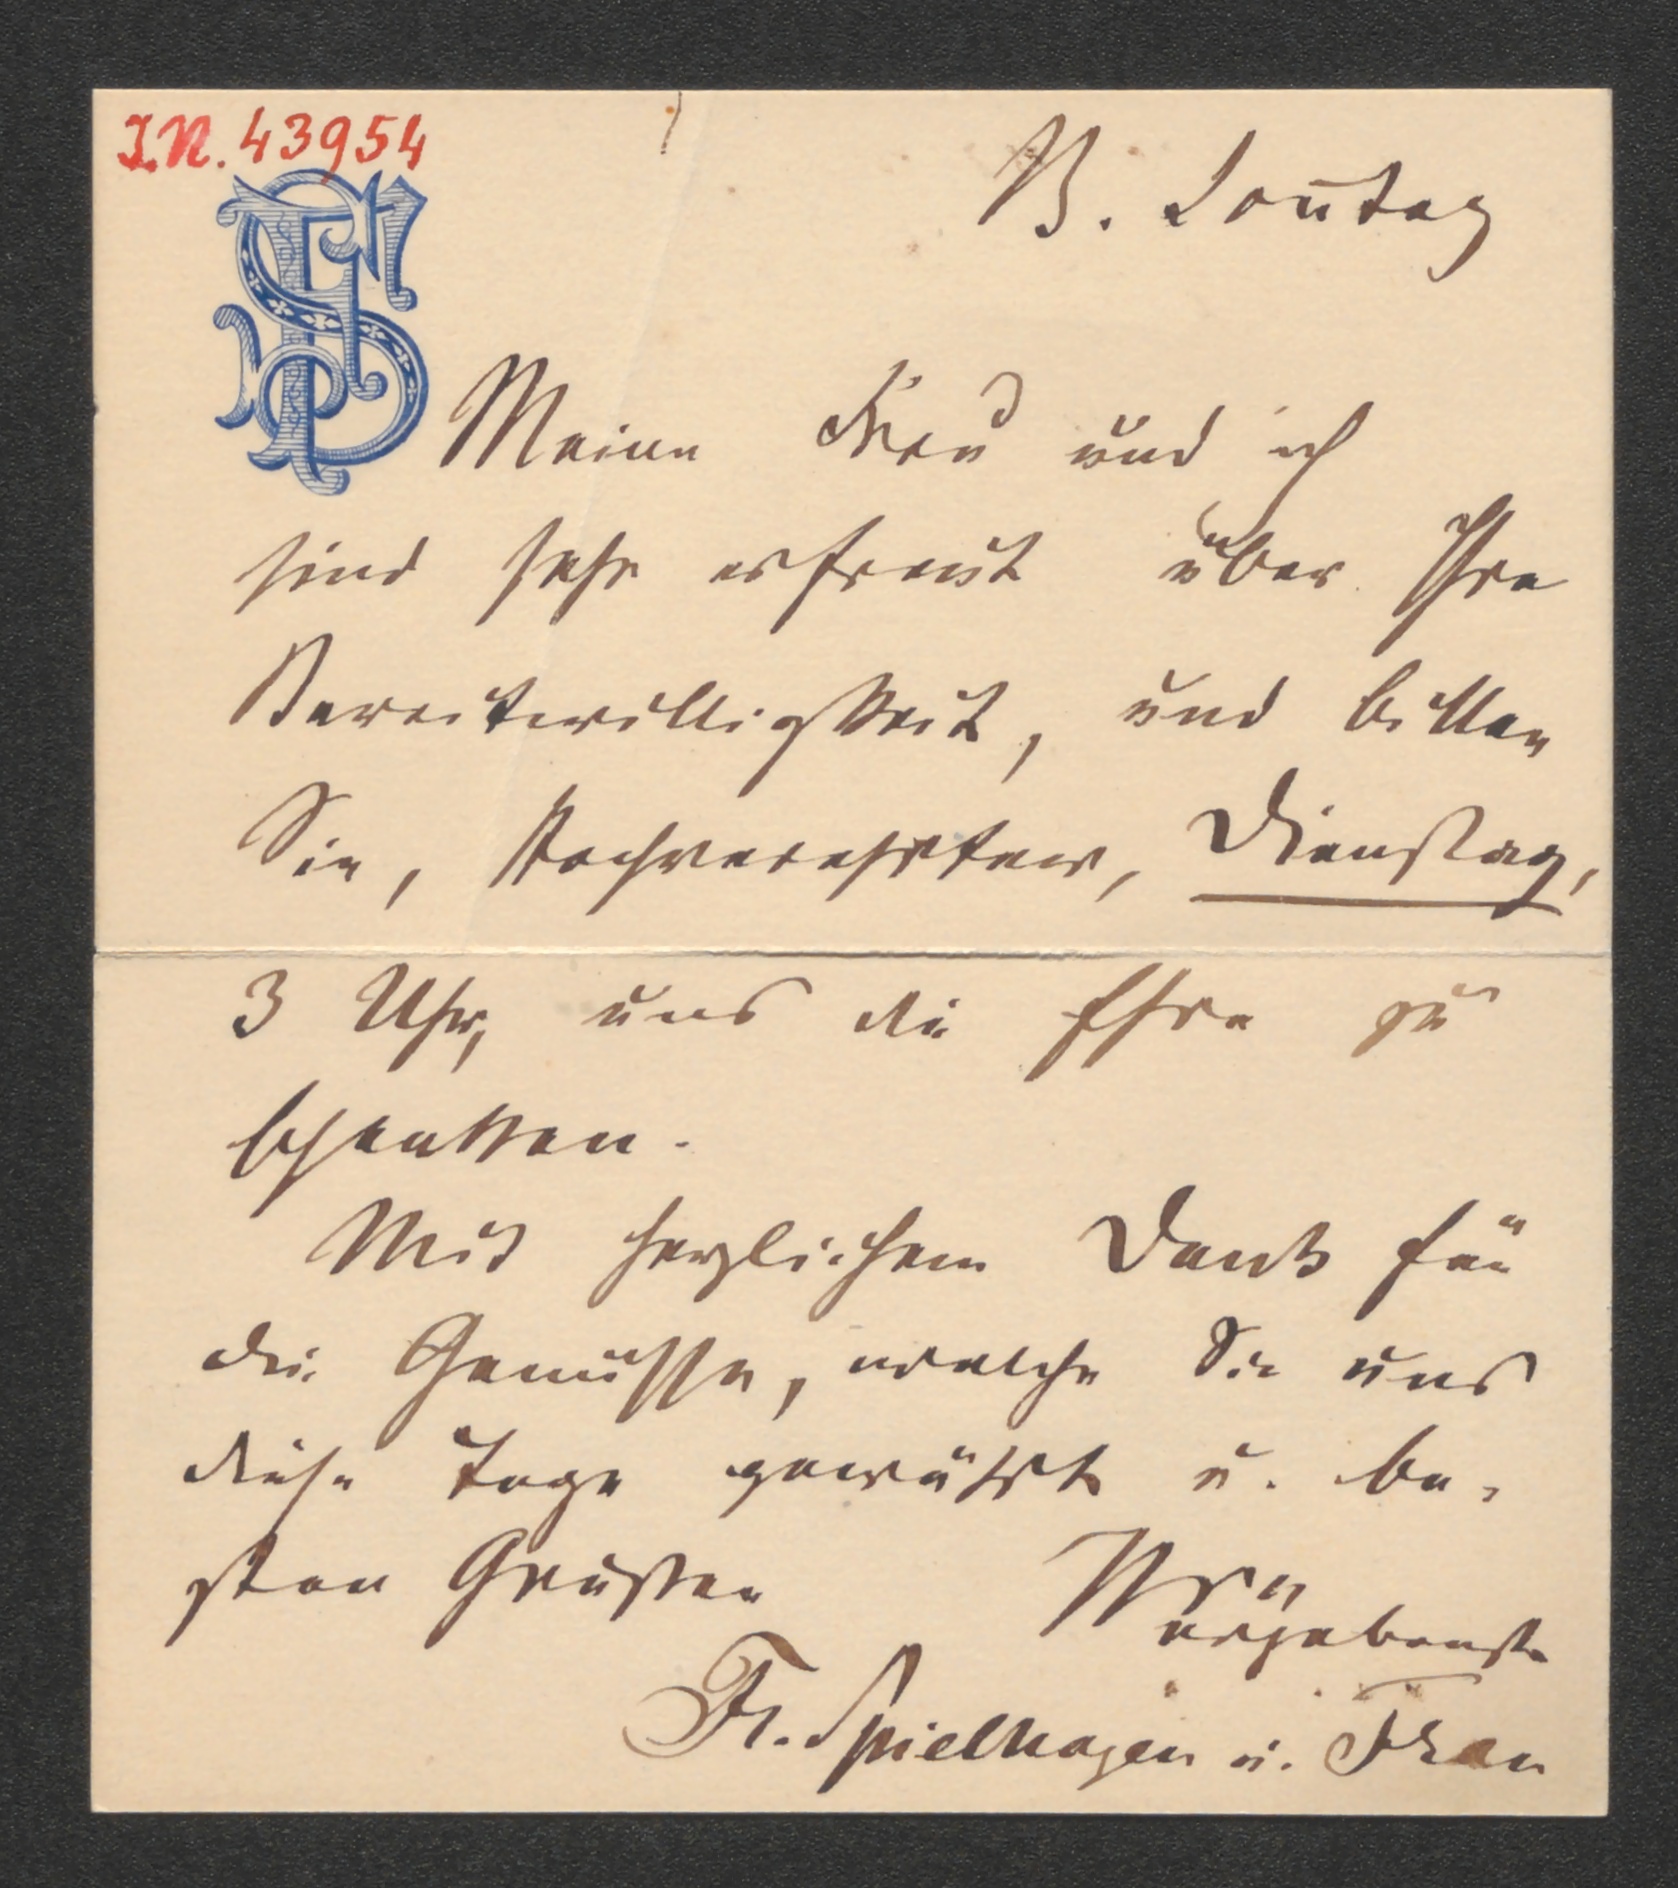 I.N. 43954
B. Sonntag
Meine Frau und ich
sind sehr erfreut über Ihre
Bereitwilligkeit, und bitten
Sie, Hochverehrter, Dienstag,
3 Uhr, uns die Ehre zu
schenken.
Mit herzlichem Dank für
die Genüsse, welche Sie uns
diese Tage gewährt u. be-
sten Grüßen
Ihre
ergebenste
Fr. Spielhagen u. Frau